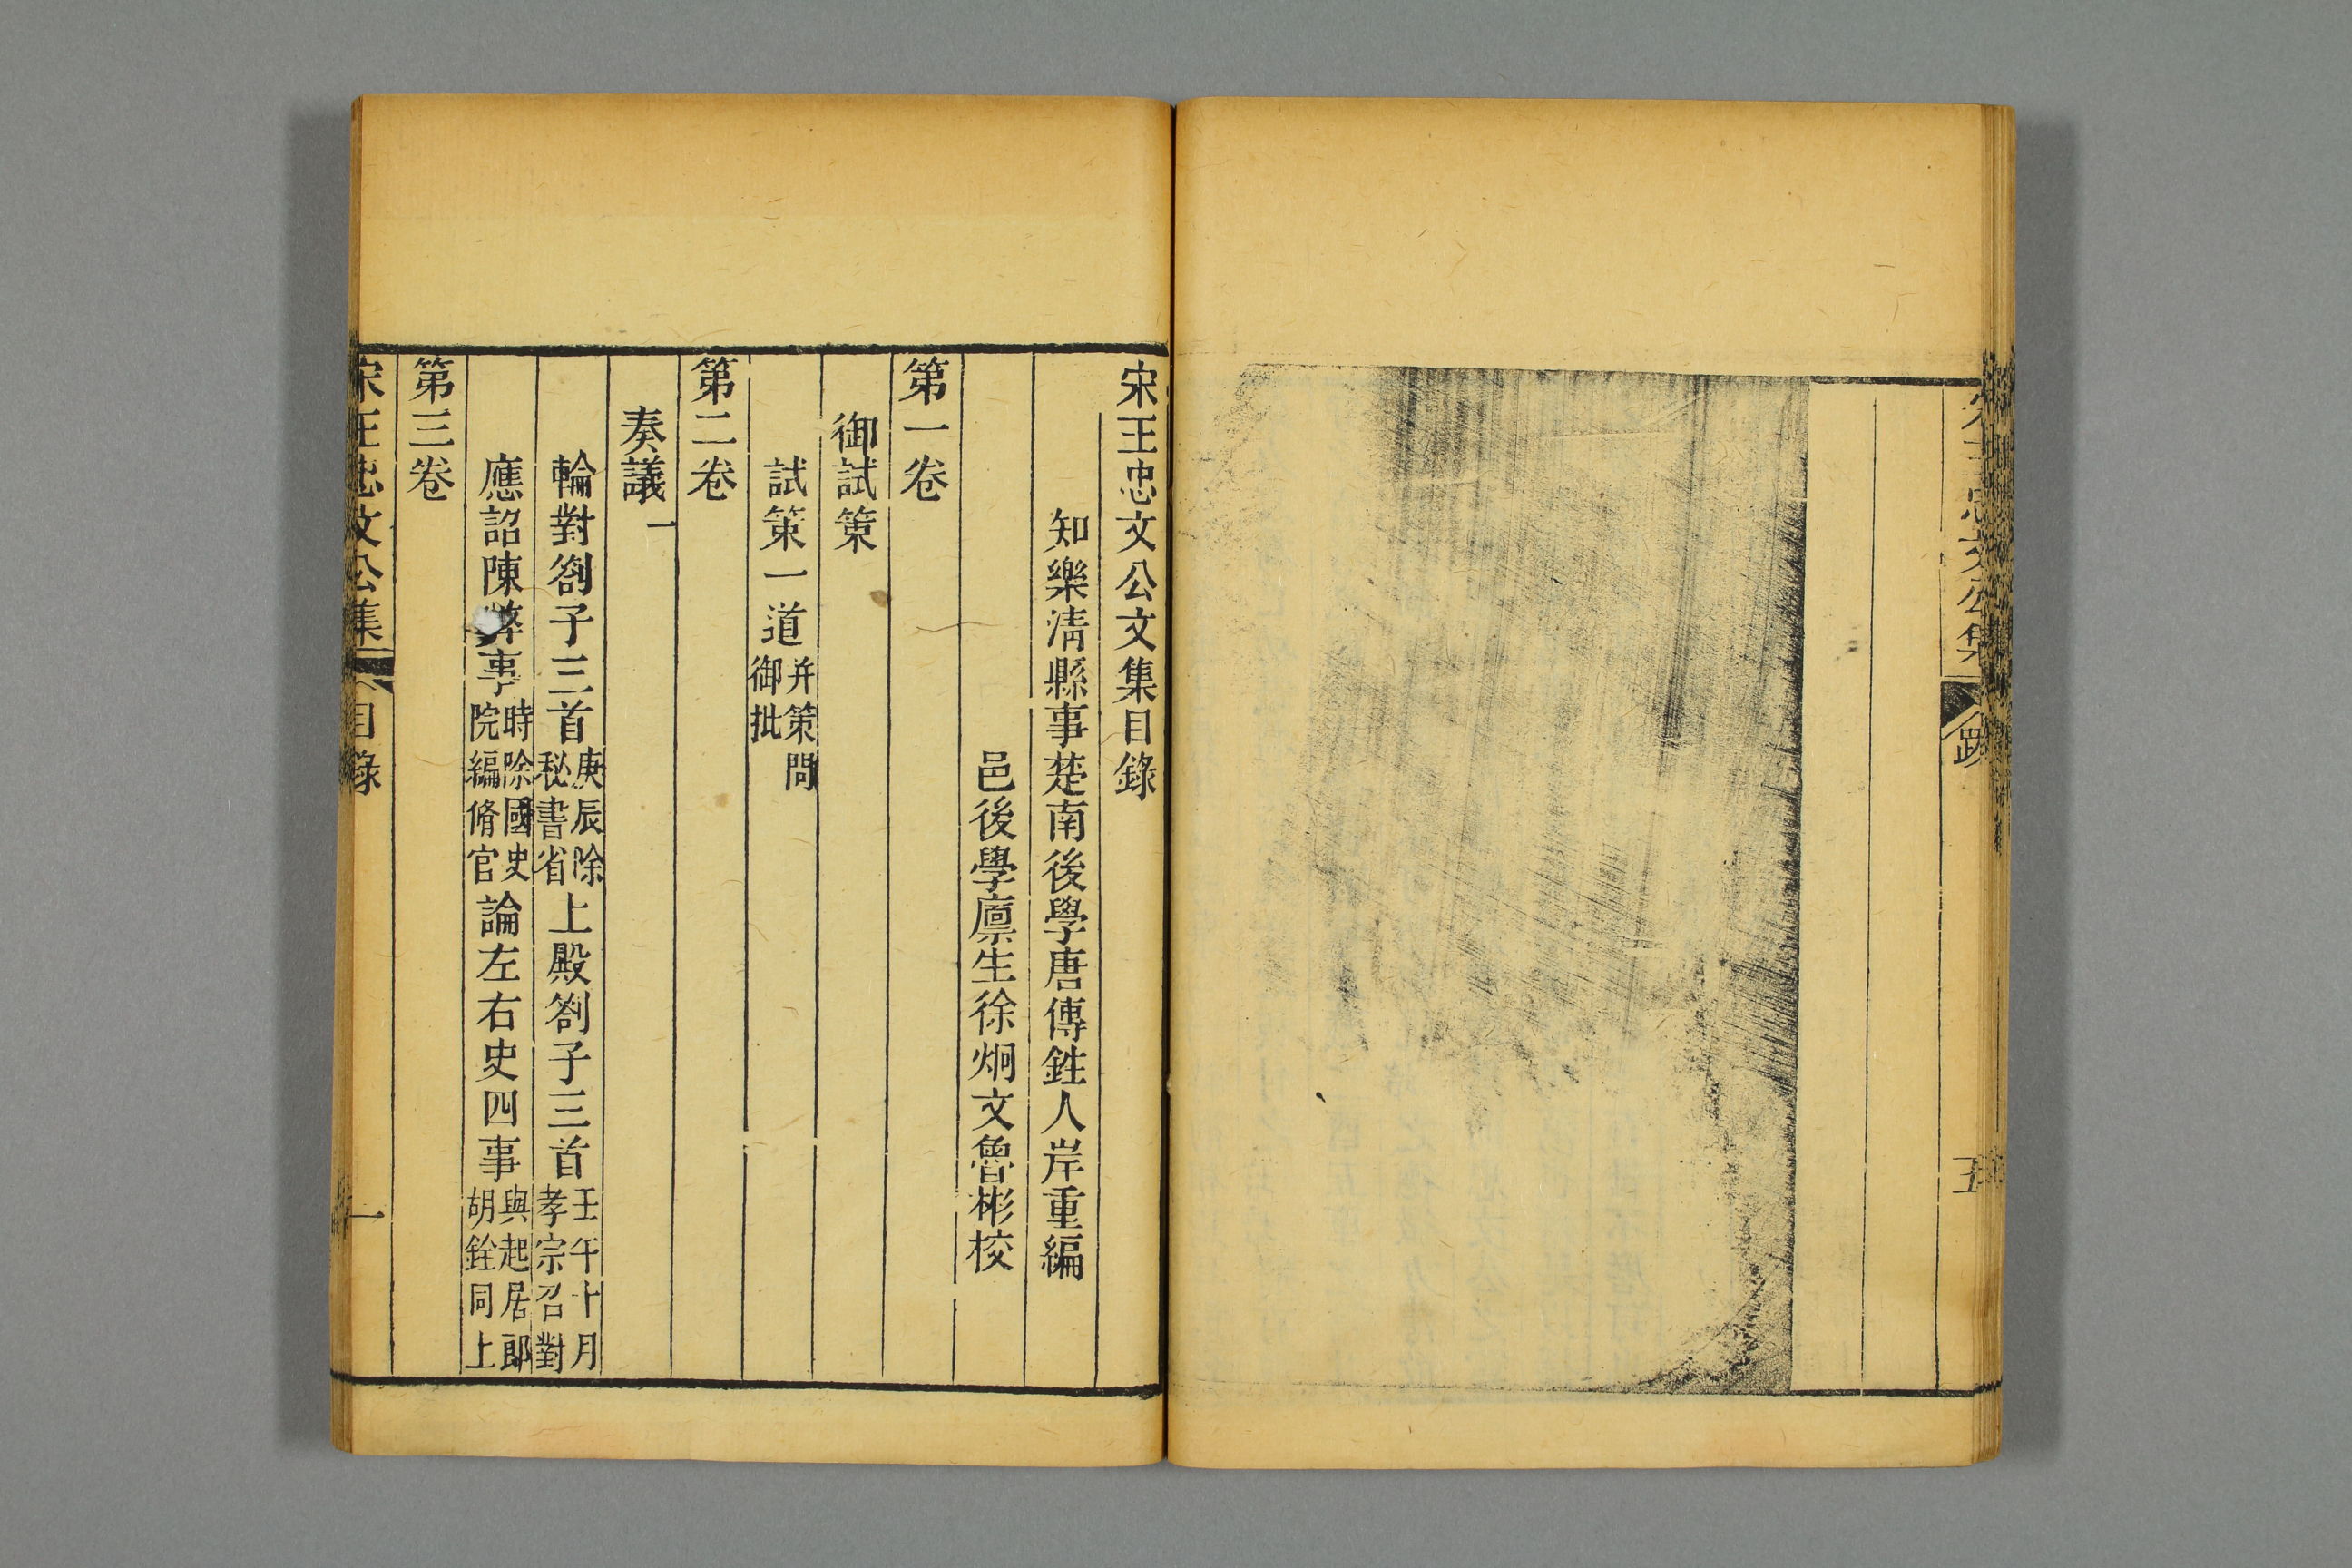 宋王忠文公集 跋 五
宋王忠文公文集目錄
知樂清縣事楚南後學唐傳鉎人岸重編
邑後學廩生徐炯文魯彬校
第一卷
御試策
試策一道并策問御批
第二卷
奏議一
輪對劄子三首庚辰除秘書省上殿劄子三首壬午十月孝宗召對
應詔陳弊事時除國史院編脩官論左右史四事與起居郎胡銓同上
第三卷
宋王忠文公集 目錄 一